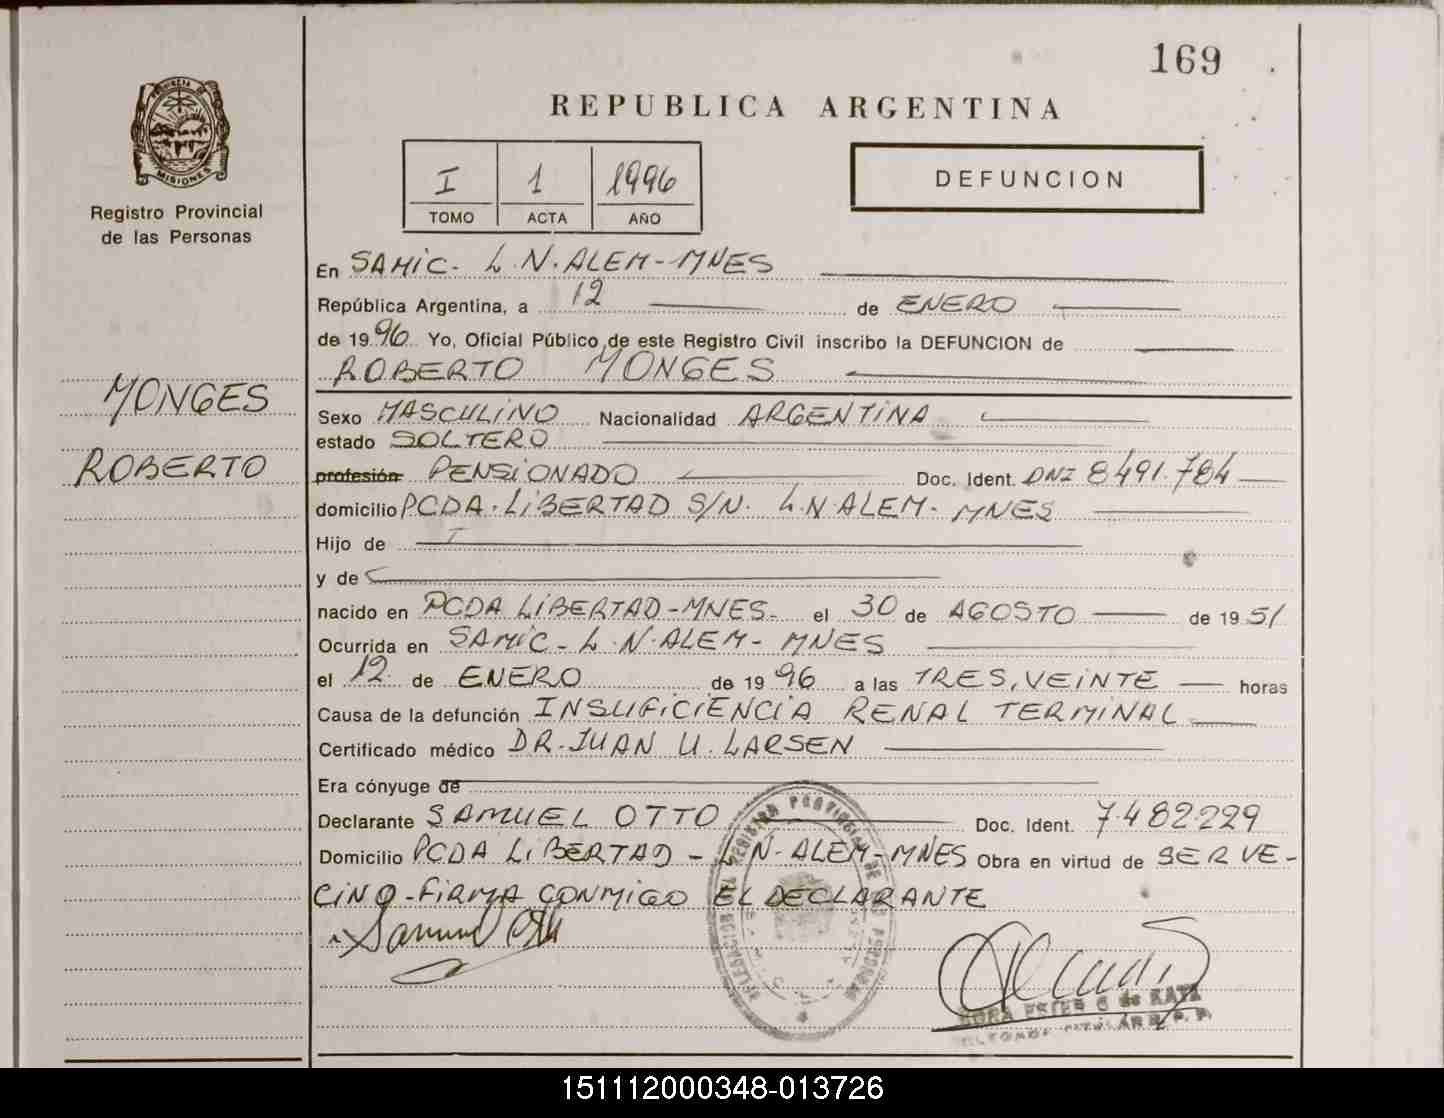 169
REPUBLICA ARGENTINA
PROVINCIA DE
MISIONES
Registro Provincial
de las Personas
I 1 1996
TOMO ACTA AÑO
DEFUNCION
En SAMIC- L.N.ALEM-MNES
República Argentina, a 12 de ENERO
de 1996 Yo, Oficial Público de este Registro Civil inscribo la DEFUNCION de
ROBERTO MONGES
MONGES
ROBERTO
Sexo MASCULINO Nacionalidad ARGENTINA
estado SOLTERO
profesión PENSIONADO Doc. Ident. DNI 8491.784
domicilio PCDA.LIBERTAD S/N. L.N ALEM- MNES
Hijo de
y de
nacido en PCDA LIBERTAD-MNES- el 30 de AGOSTO de 1951
Ocurrida en SAMIC- L.N.ALEM- MNES
el 12 de ENERO de 1996 a las TRES,VEINTE horas
Causa de la defunción INSUFICIENCIA RENAL TERMINAL
Certificado médico DR.JUAN U. LARSEN
Era cónyuge de
Declarante SAMUEL OTTO Doc. Ident. 7.482229
Domicilio PCDA LIBERTAD - L N-ALEM-MNES Obra en virtud de SER VE-
CINO-FIRMA CONMIGO EL DECLARANTE
Samuel Otto
151112000348-013726